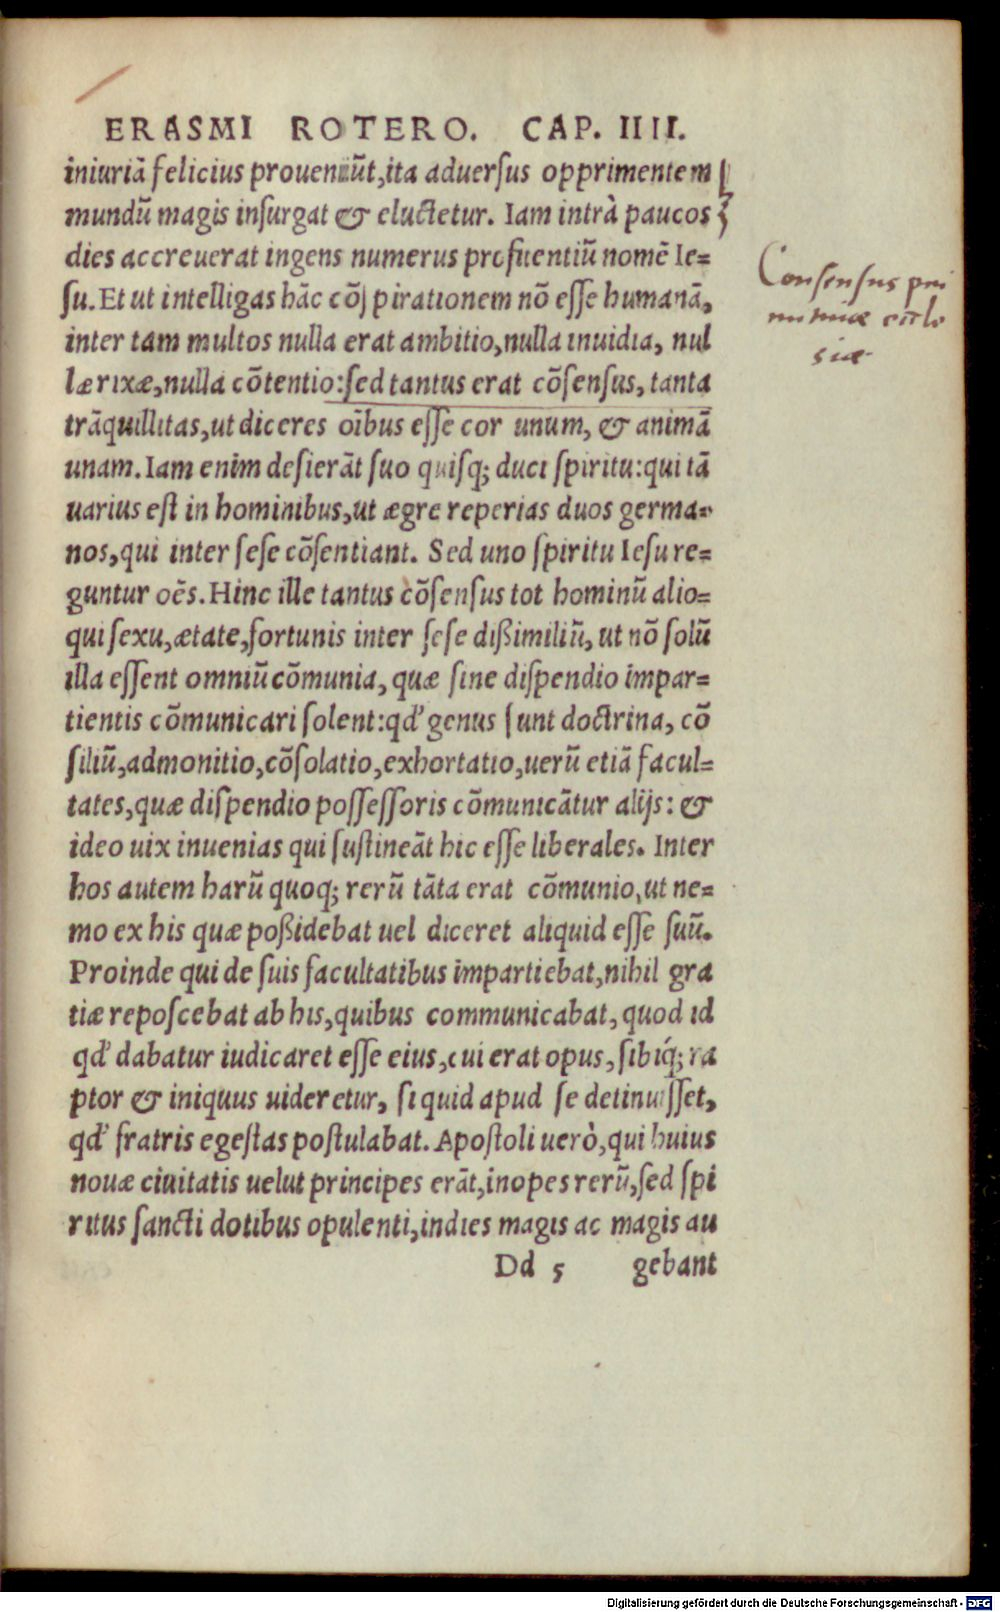 ERASMI ROTERO. CAP. IIII.
iniuriā felicius proueniūt, ita aduersus opprimentem
mundū magis insurgat & eluctetur. Iam intrà paucos
dies accreuerat ingens numerus profitentiū nomē Ie=
su. Et ut intelligas hāc cōspirationem nō esse humanā,
inter tam multos nulla erat ambitio, nulla inuidia, nul
læ rixæ, nulla cōtentio: sed tantus erat cōsensus, tanta
trāquillitas, ut diceres oībus esse cor unum, & animā
unam. Iam enim desierāt suo quisq; duci spiritu: qui tā
uarius est in hominibus, ut ægre reperias duos germa=
nos, qui inter sese cōsentiant. Sed uno spiritu Iesu re=
guntur oēs. Hinc ille tantus cōsensus tot hominū alio=
qui sexu, ætate, fortunis inter sese dißimiliū, ut nō solū
illa essent omniū cōmunia, quæ sine dispendio impar=
tientis cōmunicari solent: qd' genus sunt doctrina, cō
siliū, admonitio, cōsolatio, exhortatio, uerū etiā facul=
tates, quæ dispendio possessoris cōmunicātur alijs: &
ideo uix inuenias qui sustineāt hic esse liberales. Inter
hos autem harū quoq; rerū tāta erat cōmunio, ut ne=
mo ex his quæ poßidebat uel diceret aliquid esse suū.
Proinde qui de suis facultatibus impartiebat, nihil gra
tiæ reposcebat ab his, quibus communicabat, quod id
qd' dabatur iudicaret esse eius, cui erat opus, sibiq́; ra
ptor & iniquus uideretur, si quid apud se detinuisset,
qd' fratris egestas postulabat. Apostoli uerò, qui huius
nouæ ciuitatis uelut principes erāt, inopes rerū, sed spi
ritus sancti dotibus opulenti, indies magis ac magis au
Dd 5 gebant
Consensus pri
mitiuæ eccle
siæ
Digitalisierung gefördert durch die Deutsche Forschungsgemeinschaft - DFG